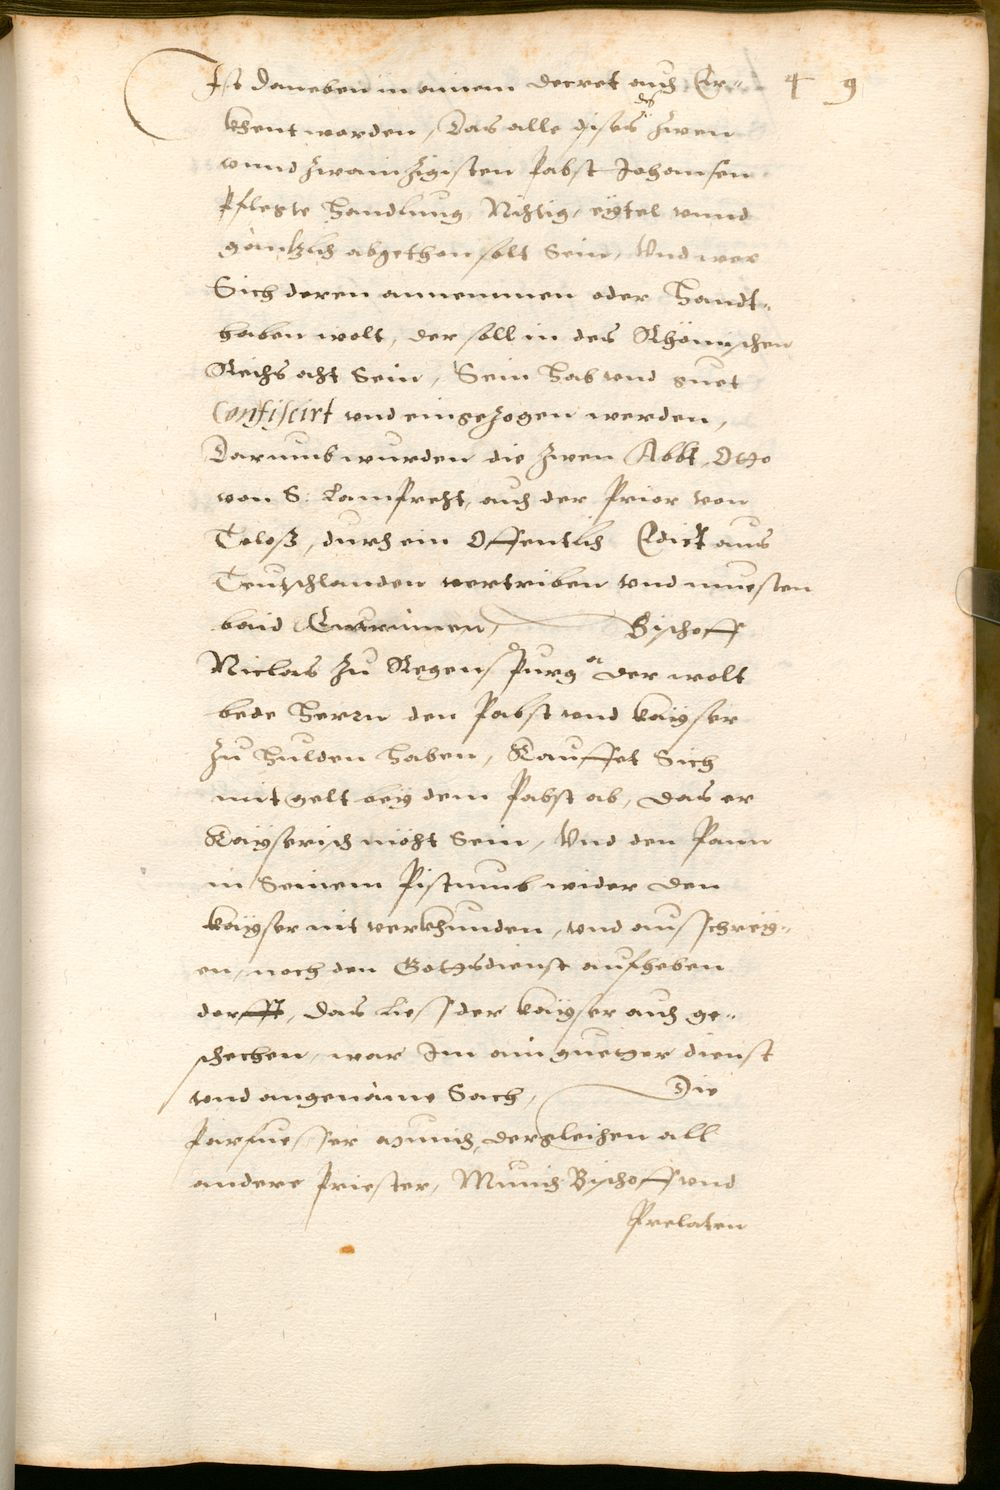 Ist daneben in ainem decret auch Er- 4 9
khent worden, Das alle dises des zwen
vnnd zwainzigisten Pabst Johansen
Pflegte Handlung Nichtig, eytel vnnd
gäntzlich abgethon solt Sein, Vnd wer
Sich deren annemmen oder Handt-
haben wolt, der soll in des Rhömischen
Reichs acht Sein, Sein Hab vnd guet
Confiscirt vnd eingezogen werden,
Darumb wurden die zwen Abbt, Otto
von S: Lamprecht, auch der Prior von
Tolosz, durch ein Offentlich Edict aus
Teutschlanden vertriben vnd muesten
baid Entrinnen, Bischoff
Niclas zu Regenspurg der wolt
bede Herrn den Pabst vnd kayser
zu Hulden Haben, Kauffet Sich
mit gelt bey dem Pabst ab, das er
Kayserisch möcht Sein, Vnd den Pann
in Seinem Pistumb wider den
kayser nit verkhunden, vnd ausschrey-
en, noch den Gottsdienst aufheben
dorfft, das lies der kayser auch ge-
schechen, war Im ain guetter dienst
vnd angenäme Sach, Die
Parfuesser Munich, dergleichen all
andere Priester, Munich Bischoff vnd
Prelaten